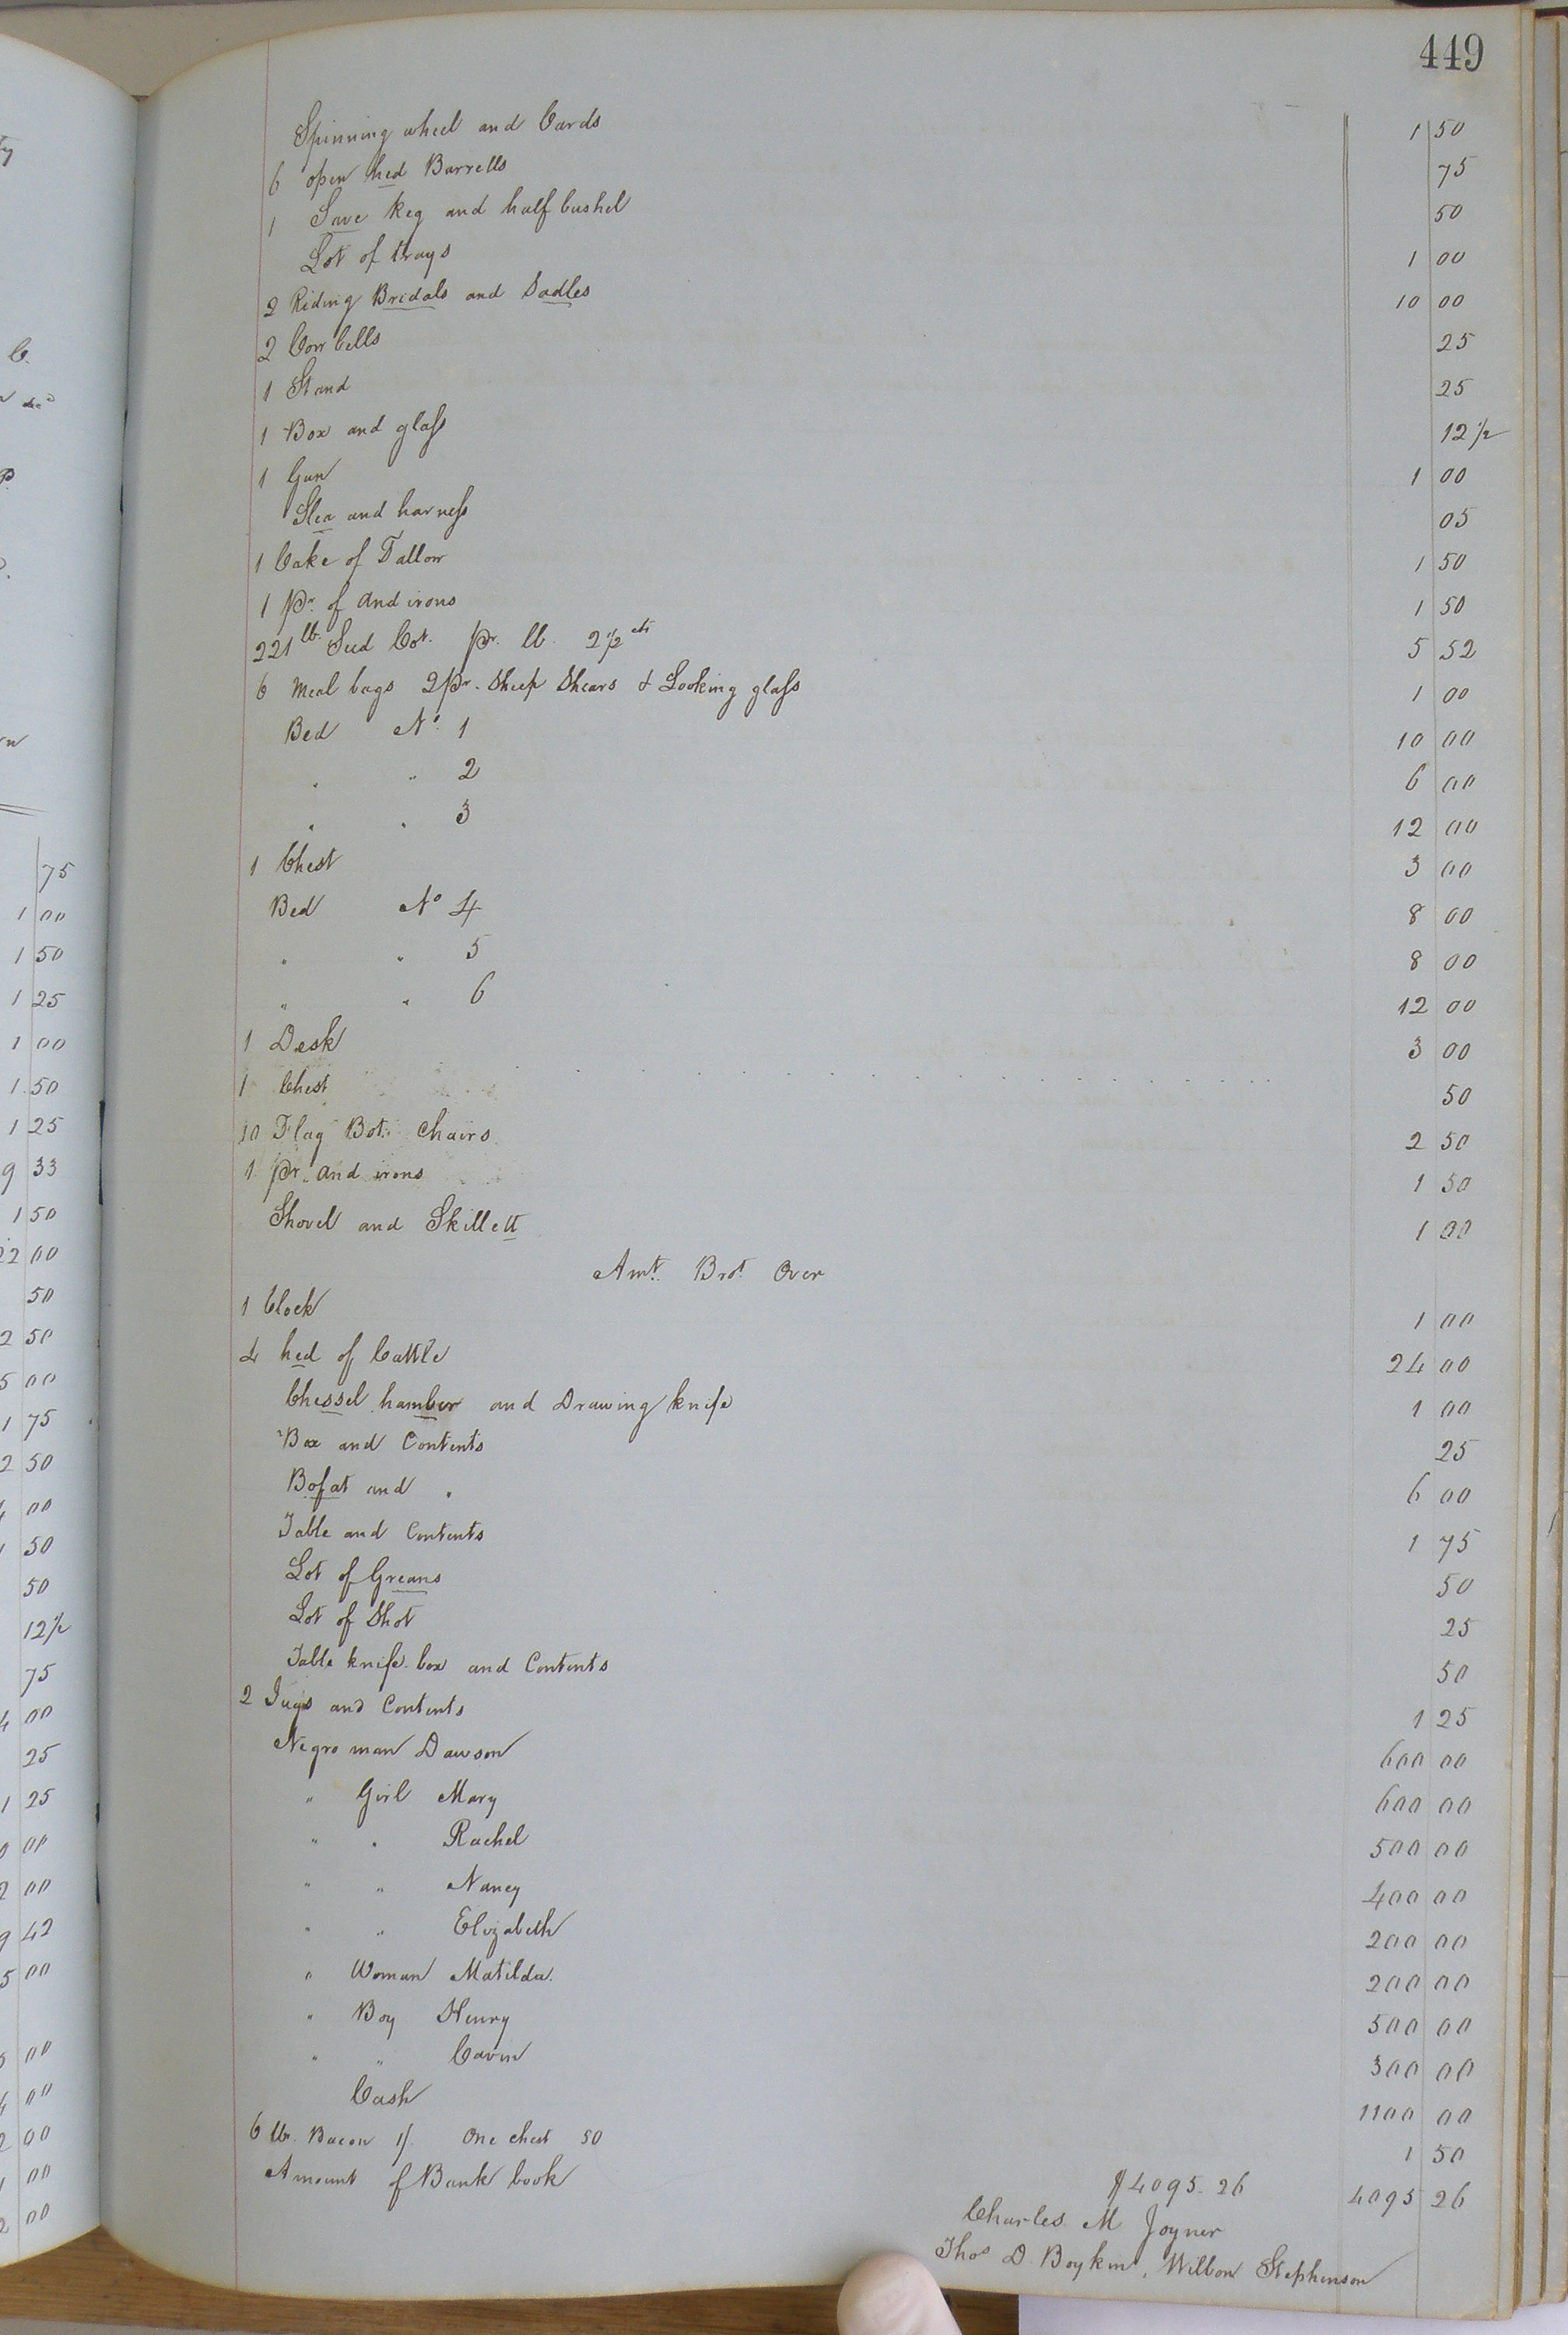 449
Spinning wheel and Cards 1 50
6 open hed Barrells 75
1 Save keg and half bushel 50
Lot of trays 1 00
2 Riding Bridals and Sadles 10 00
2 Cow bells 25
1 Stand 25
1 Box and glass 12 1/2
1 Gun 1 00
Slea and harness 05
1 Cake of Tallow 1 50
1 Pr. of and irons 1 50
221 lb. Seed Cot. pr. lb. 2 1/2 cts 5 52
6 Meal bags 2 pr. Sheep Shears & Looking glass 1 00
Bed No. 1 10 00
" " 2 6 00
" " 3 12 00
1 Chest 3 00
Bed No 4 8 00
" " 5 8 00
" " 6 12 00
1 Desk 3 00
1 Chest 50
10 Flag Bot. Chairs 2 50
1 Pr. and irons 1 50
Shovel and Skillett 1 00
Amt. Brot. Over
1 Clock 1 00
4 hed of Cattle 24 00
Chessel hamber and Drawing knife 1 00
Box and Contents 25
Bofat and " 6 00
Table and Contents 1 75
Lot of Greans 50
Lot of Shot 25
Table knife box and Contents 50
2 Jugs and Contents 1 25
Negro man Dawson 600 00
" Girl Mary 600 00
" " Rachel 500 00
" " Nancy 400 00
" " Elizabeth 200 00
" Woman Matilda. 200 00
" Boy Henry 500 00
" " Cavin 300 00
Cash 1100 00
6 lb. Bacon 1/. One chest 50 1 50
Amount of Bank book $4095.26 4095 26
Charles M Joyner
Thos D. Boykin, Willson Stephenson
75
1 00
1 50
1 25
1 00
1 50
1 25
9 33
1 50
22 00
50
2 50
5 00
1 75
2 50
00
50
50
12 1/2
75
4 00
25
1 25
00
2 00
9 42
5 00
00
00
2 00
00
2 00